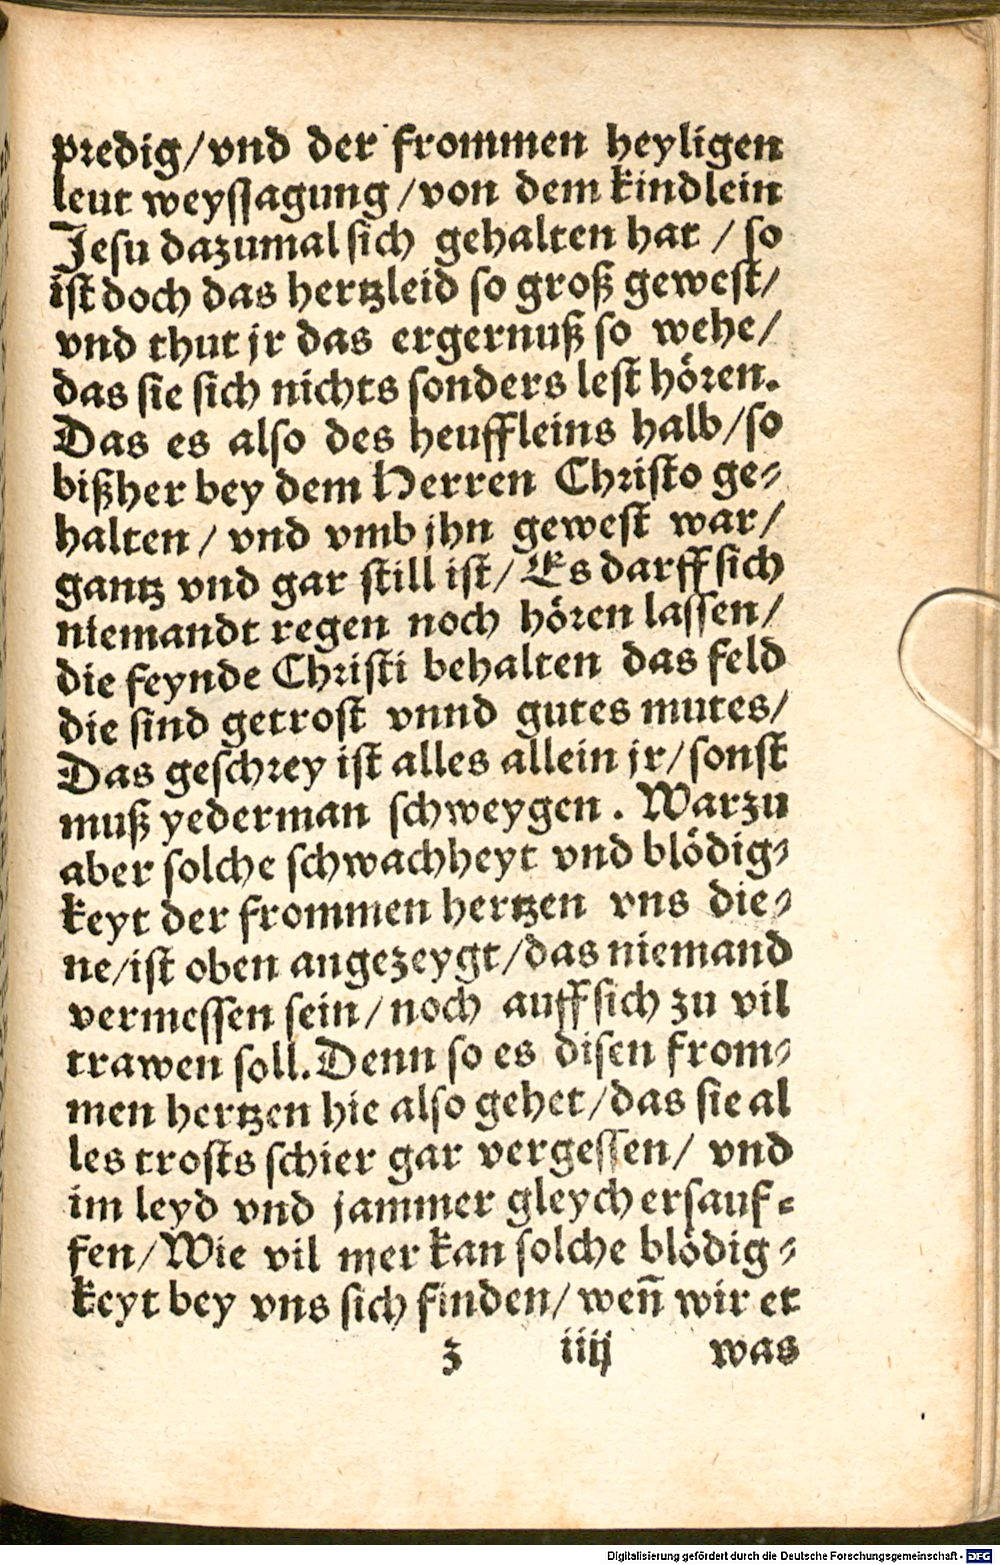 predig/vnd der frommen heyligen
leut weyssagung/von dem kindlein
Jesu dazumal sich gehalten hat/so
ist doch das hertzleid so groß gewest/
vnd thut jr das ergernuß so wehe/
das sie sich nichts sonders lest hören.
Das es also des heuffleins halb/so
bißher bey dem Herren Christo ge-
halten/vnd vmb jhn gewest war/
gantz vnd gar still ist/Es darff sich
niemandt regen noch hören lassen/
die feynde Christi behalten das feld
die sind getrost vnnd gutes mutes/
Das geschrey ist alles allein jr/sonst
muß yederman schweygen. Warzu
aber solche schwachheyt vnd blödig-
keyt der frommen hertzen vns die-
ne/ist oben angezeygt/das niemand
vermessen sein/noch auff sich zu vil
trawen soll. Denn so es disen from-
men hertzen hie also gehet/das sie al
les trosts schier gar vergessen/vnd
im leyd vnd jammer gleych ersauf-
fen/Wie vil mer kan solche blödig-
keyt bey vns sich finden/weñ wir et
z iiij was
Digitalisierung gefördert durch die Deutsche Forschungsgemeinschaft - DFG